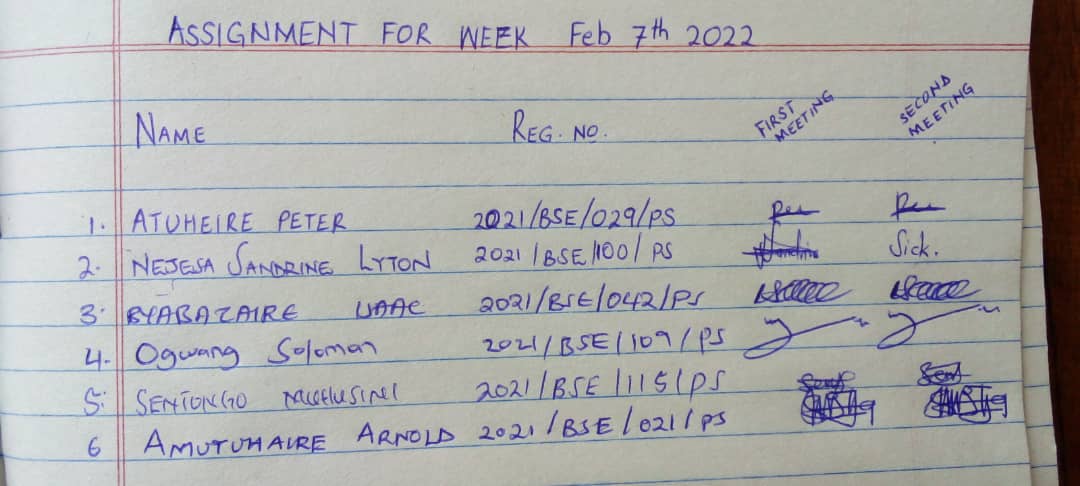 ASSIGNMENT FOR WEEK Feb 7th 2022
NAME REG. NO. FIRST MEETING SECOND MEETING
1. ATUHEIRE PETER 2021/BSE/029/PS
2. NEJESA SANDRINE LYTON 2021/BSE/100/PS Sick.
3. BYABAZAIRE ISAAC 2021/BSE/042/PS
4. Ogwang Solomon 2021/BSE/109/PS
5. SENTONGO 2021/BSE/115/PS
6 AMUTUHAIRE ARNOLD 2021/BSE/021/PS